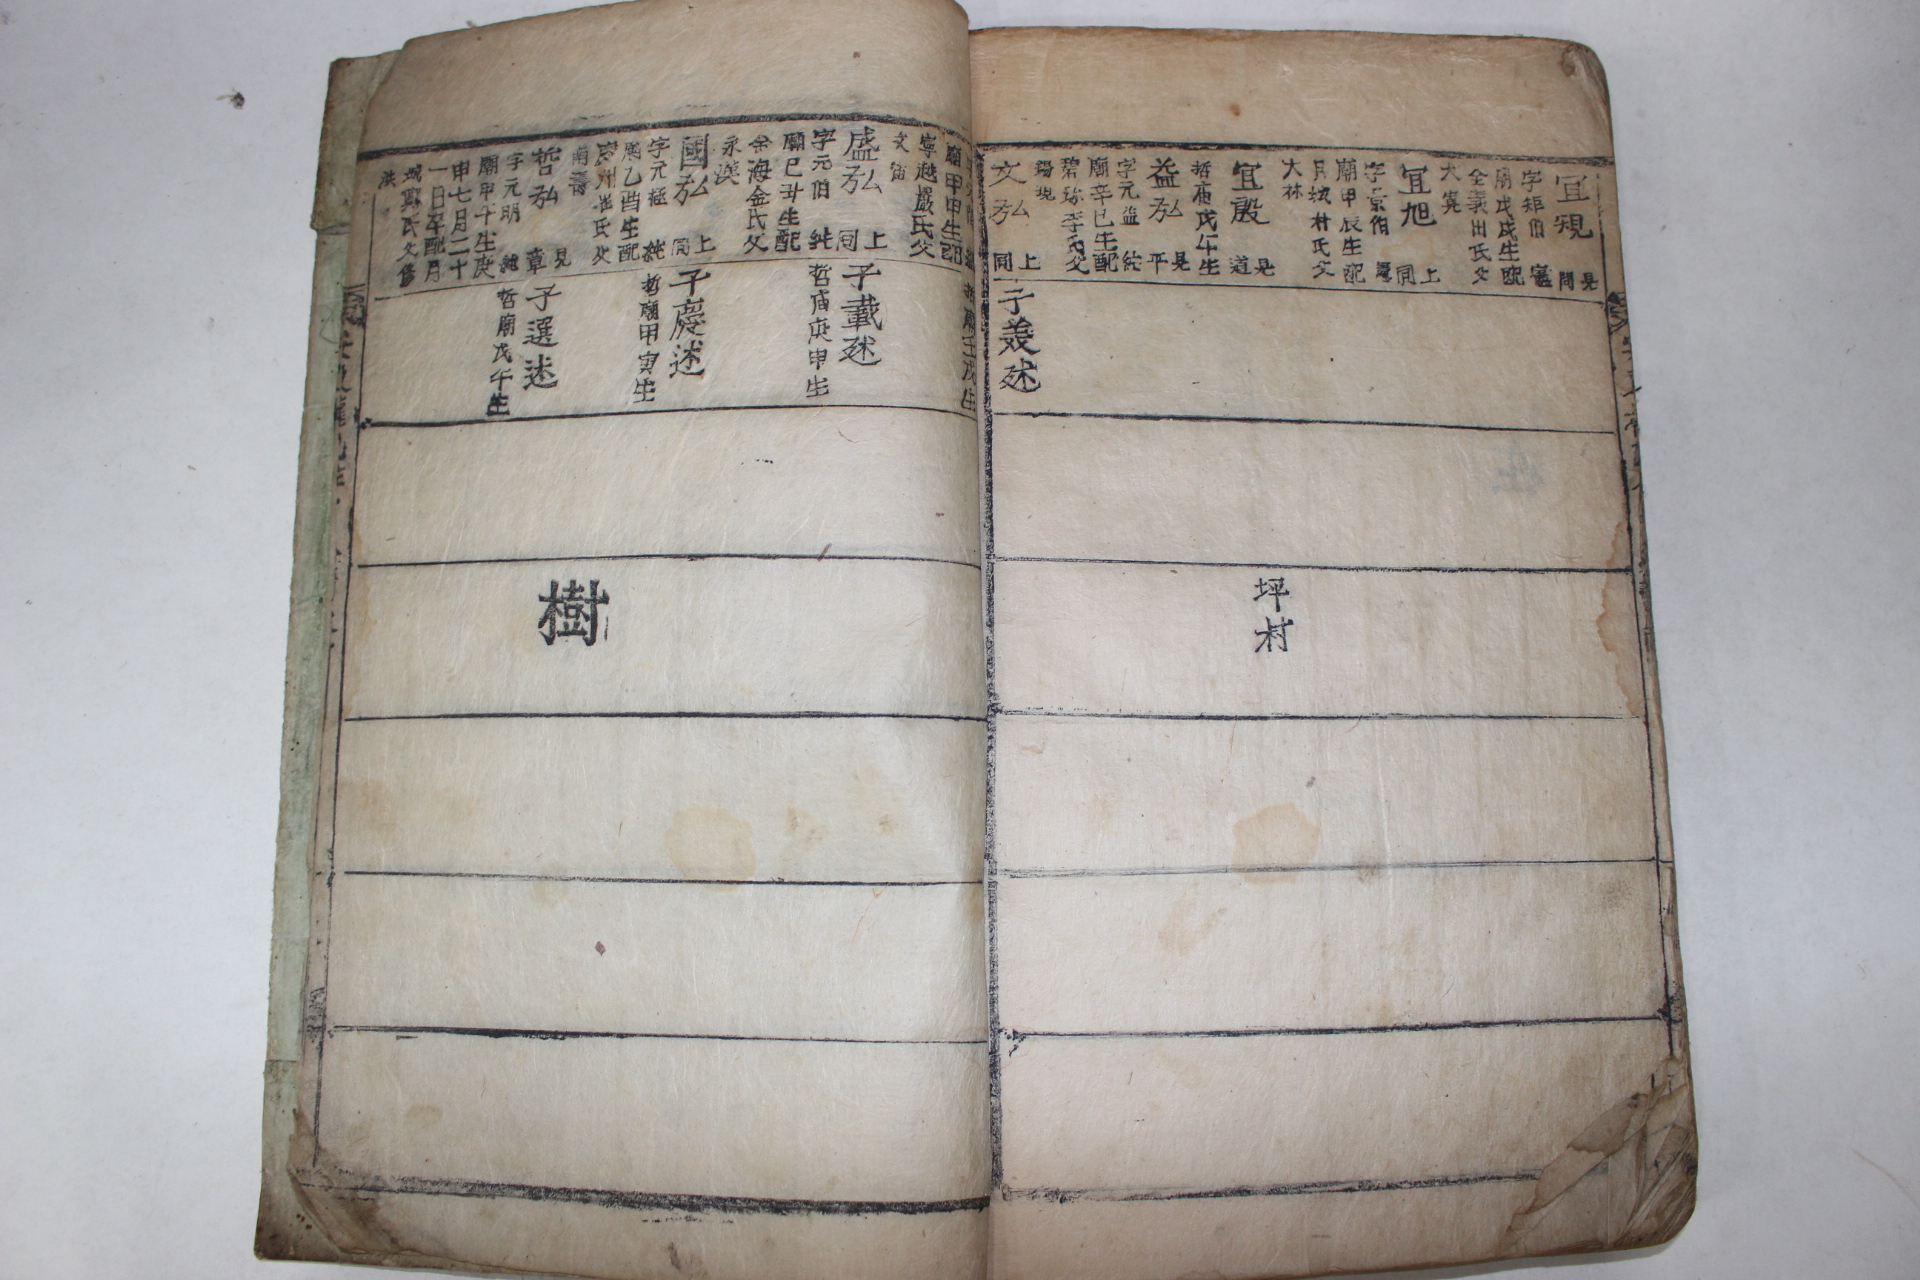 宜規
見問
字矩伯 憲
廟戊戌生配
全義田氏父
大寬
宜旭
上同
字景伯 憲
廟甲辰生配
月城朴氏父
大林
宜殷
見道
哲庙戊午生
益弘
見平
字元益 純
廟辛巳生配
碧珍李氏父
錫現
文弘
上同
子義述
廟甲申生配
寧越嚴氏父
文宙
哲廟壬戌生
盛弘
上同
字元伯 純
廟己丑生配
金海金氏父
永漢
子載述
哲庙庚申生
國弘
上同
字元極 純
廟乙酉生配
氏父
南壽
子慶述
哲廟甲寅生
哲弘
見章
字元明 純
廟甲午生庚
申七月二十
一日卒配月
城鄭氏父
洪
子選述
哲廟戊午生
坪村
樹